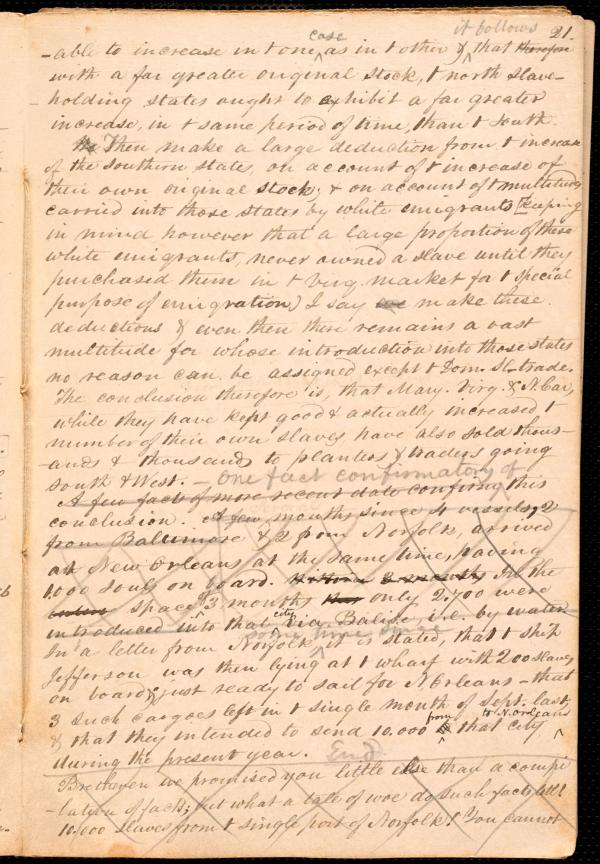 21.
-able to increase in t one case as in t other & it follows that therefore
with a far greater original stock, t north slave-
holding states ought to exhibit a far greater
increase, in t same period of time, than t south.
Then make a large deduction from t increase
of the southern states, on account of t increase of
their own original stock; & on account of t multitudes
carried into those states by white emigrants [keeping
in mind however that a large proportion of these
white emigrants, never owned a slave until they
purchased them in t Virg. market for t special
purpose of emigration) I say we make these
deductions & even then there remains a vast
multitude for whose introduction into those states
no reason can be assigned except t Dom. Sl. trade.
The conclusion therefore is, that Mary. Virg. & N. Car,
while they have kept good & actually increased t
number of their own slaves have also sold thous-
-ands & thousands to planters & traders going
South & West. - One fact confirmatory of
A few facts of more recent date confirms this
conclusion. A few months since 4 vessels, 2
from Baltimore & 2 from Norfolk, arrived
at New Orleans at the same time, having
1000 souls on board. In the
space of 3 months only 2.700 were
introduced into that city via Balise, i.e. by water.
some time since
In a letter from Norfolk it is stated, that t ship
Jefferson was then lying at t wharf with 200 slaves
on board & just ready to sail for N. Orleans - that
3 such cargoes left in t single month of Sept. last,
& that they intended to send 10.000 from that city to N. Orleans
during the present year. End
Bretheren we promised you little else than a compi
-lation of facts; but what a tale of woe do such facts tell!
10.000 slaves from t single port of Norfolk! You cannot